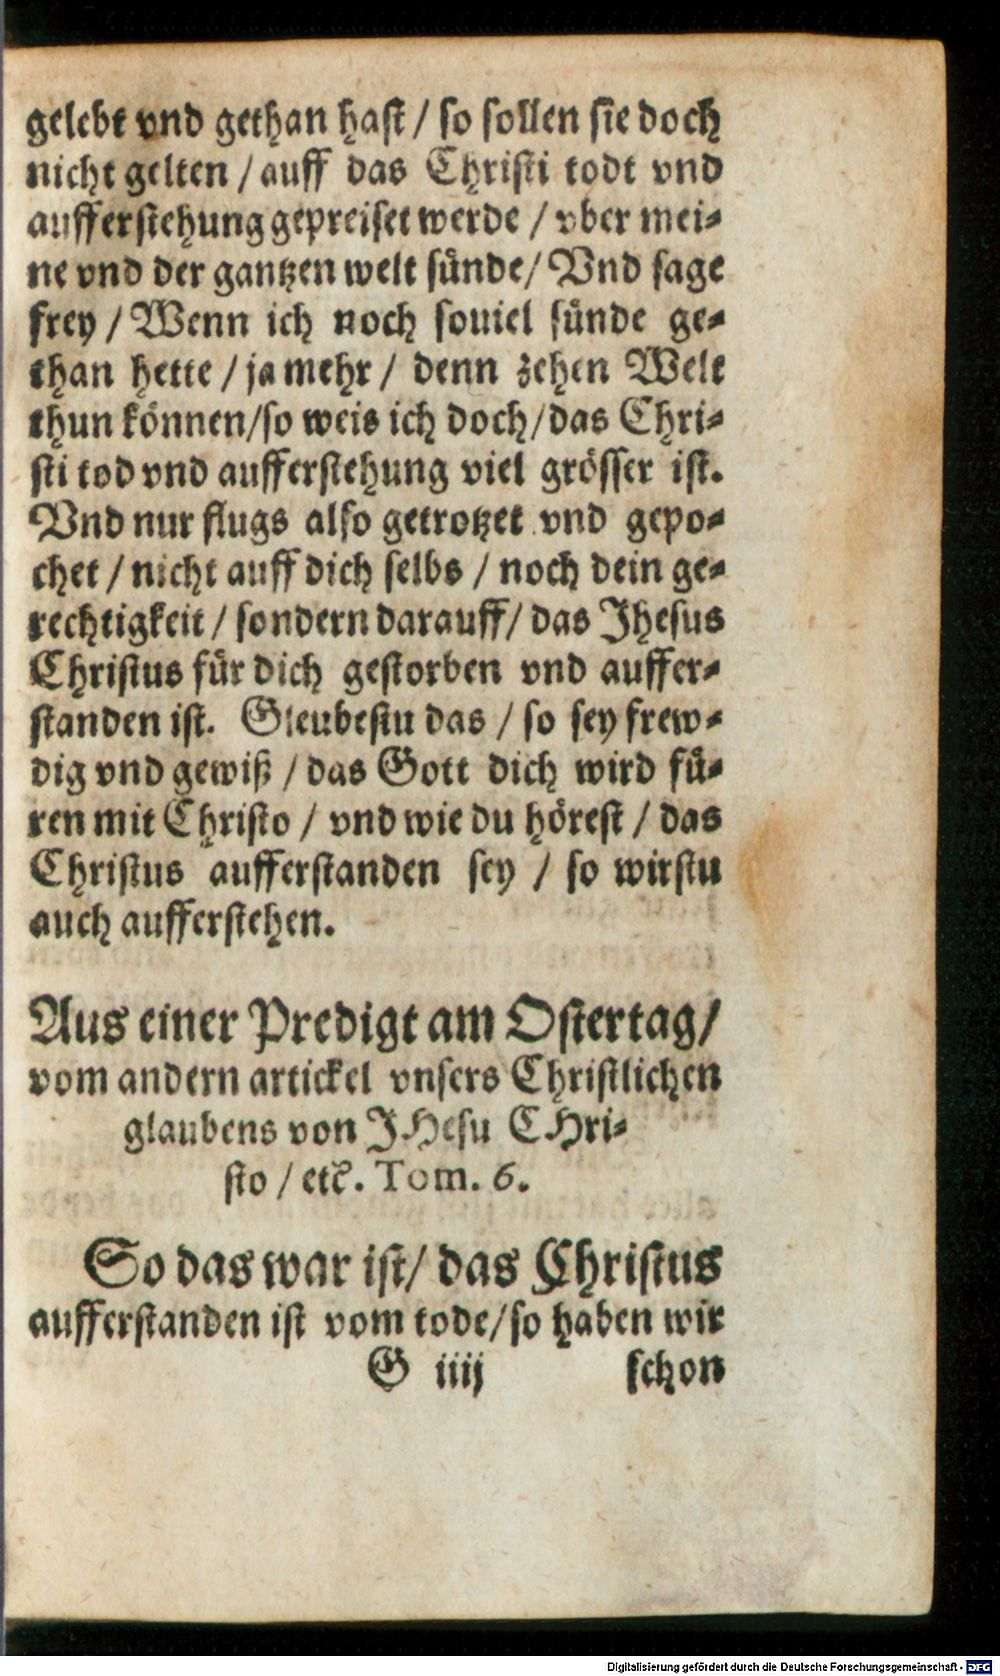 gelebt vnd gethan hast / so sollen sie doch
nicht gelten / auff das Christi todt vnd
aufferstehung gepreiset werde / vber mei-
ne vnd der gantzen welt sünde / Vnd sage
frey / Wenn ich noch souiel sünde ge-
than hette / ja mehr / denn zehen Welt
thun können / so weis ich doch / das Chri-
sti tod vnd aufferstehung viel grösser ist.
Vnd nur flugs also getrotzet vnd gepo-
chet / nicht auff dich selbs / noch dein ge-
rechtigkeit / sondern darauff / das Jhesus
Christus für dich gestorben vnd auffer-
standen ist. Gleubestu das / so sey frew-
dig vnd gewiß / das Gott dich wird fü-
ren mit Christo / vnd wie du hörest / das
Christus aufferstanden sey / so wirstu
auch aufferstehen.
Aus einer Predigt am Ostertag /
vom andern artickel vnsers Christlichen
glaubens von JHesu CHri-
sto / etc. Tom. 6.
So das war ist / das Christus
aufferstanden ist vom tode / so haben wir
G iiij schon
Digitalisierung gefördert durch die Deutsche Forschungsgemeinschaft - DFG